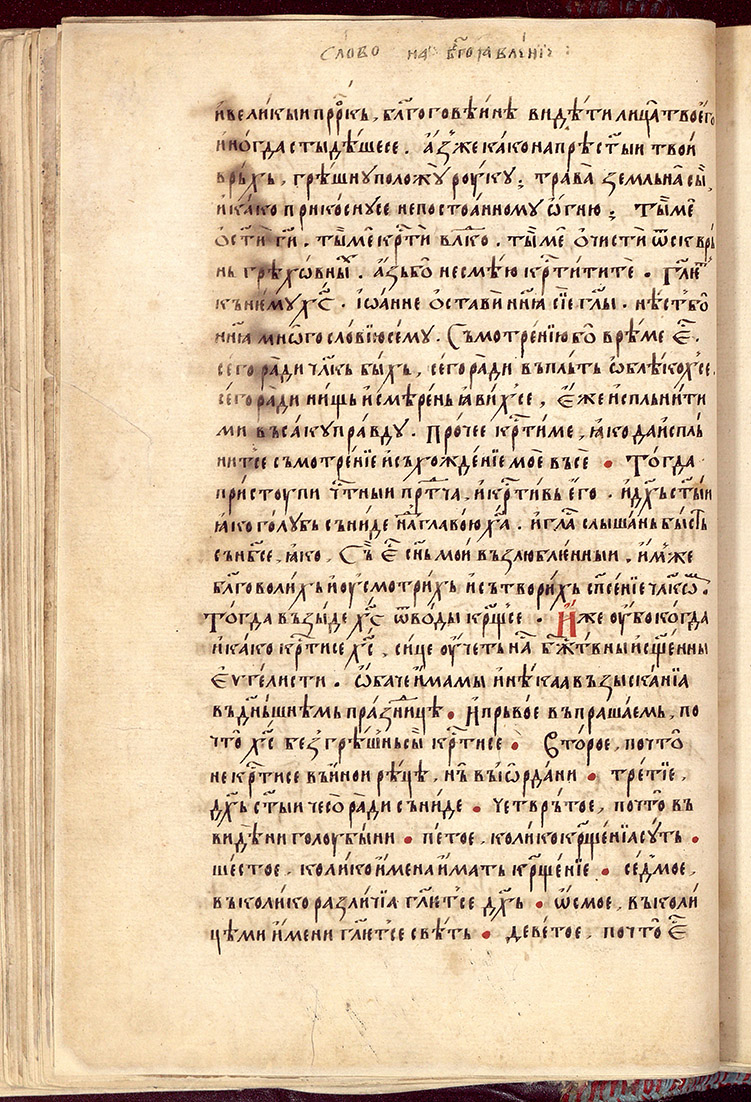 Слово на бг҃оявлѣніе :
и҆великыи прр҃ѡкь, бл҃гоговѣи́нѣ видѣ́ти лица̀ твоего̀
и҆ногда стыдѣ́шесе . а҆́зже како на прѣст҃ыи твои
врь́хь, грѣ́шну положу̀ роу́ку ; трава̀ земльна̀ сы̀,
и҆ка́ко прикосну́се непостоа́нному ѡ҆гню ; ты̀ мѐ
ѡ҆ст҃ѝ гн҃и . ты̀ мѐ кр҃тѝ влⷣко . ты̀ мѐ ѡ҆чисти ѿ скврь
нь грѣхо́вныⷯ . а҆́зь бо не смѣ́ю кр҃тити тѐ . гл҃ѥт
кьнѥму хс҃ . і҆ѡа́нне ѡ҆ста́ви нн҃ꙗ сі́е гл҃ы . нѣ́ст бо
нн҃ꙗ мно́гословїю сему . Сьмотре́нїю бо врѣ́ме є҆с҃ .
сего̀ ра́ди чл҃кь бы́хь, сего̀ ра́ди вьпль́ть ѡ҆блѣко́хсе .
сего̀ ра́ди нищь и҆ смѣре́нь ꙗ҆ви́хсе, є҆́же и҆спльни́ти
ми вьса́ку пра́вду . Про́чее кр҃ти ме, ꙗ҆́ко да и҆спль
нитсе сьмотре́нїе и҆ схожде́нїе моѐ вьсѐ • Тогда
пристоупи чт҃ныи прⷣтча, и҆ кр҃тивь є҆го̀ . и҆ дх҃ь ст҃ыи
ꙗ҆́ко го́лубь сьни́де на̀ главо́ю ха҃ . и҆ гла҃ слы́шань бы́сть
сьнб҃се, ꙗ҆́ко , Сь̀ є҆с҃ сн҃ь мои вьзлюбле́нныи . и҆́мже
бл҃говоли́хь и҆ оу҆смотри́хь и҆ сьтвори́хь сп҃се́нїе чл҃кѡⷨ .
Тогда вьзы́де хс҃ ѿ воды̀ крщ҃се . И҆́же оу҆́бо когда
и҆ка́ко кр҃тисе хс҃ , си́це оу҆́четь на҃ бж҃тьвныи и҆ сщ҃енны
є҆ѵгѐлисти . ѡ҆ба́че и҆́мамы и҆ нѣ́каа вьзыска́нїа
вь дн҃ьшнѥмь пра́знице • И҆ прьвое вьпраша́емь, по
что̀ хс҃ безгрѣ́шнь сы̀ кр҃тисе • Второе, почто̀
не кр҃тисе вьи́нои рѣ́це, нь̀ вьи҆ѡрда́ни • тре́тїе,
дх҃ь ст҃ыи чесо̀ ра́ди сьни́де • четврь́тое, почто̀ вь
видѣ́ни голоу́быни • пе́тое, коли́ко крщ҃е́нїа су́ть •
ше́стое, коли́ко и҆мена и҆́мать крщ҃е́нїе • се́дмое,
вь коли́ко разли́чїа гл҃ѥ́тсе дх҃ь • ѡ҆́смое, вь коли
цѣ́ми и҆́мени гл҃ѥ́тсе свѣ́ть • деве́тое, почто̀ є҆с҃